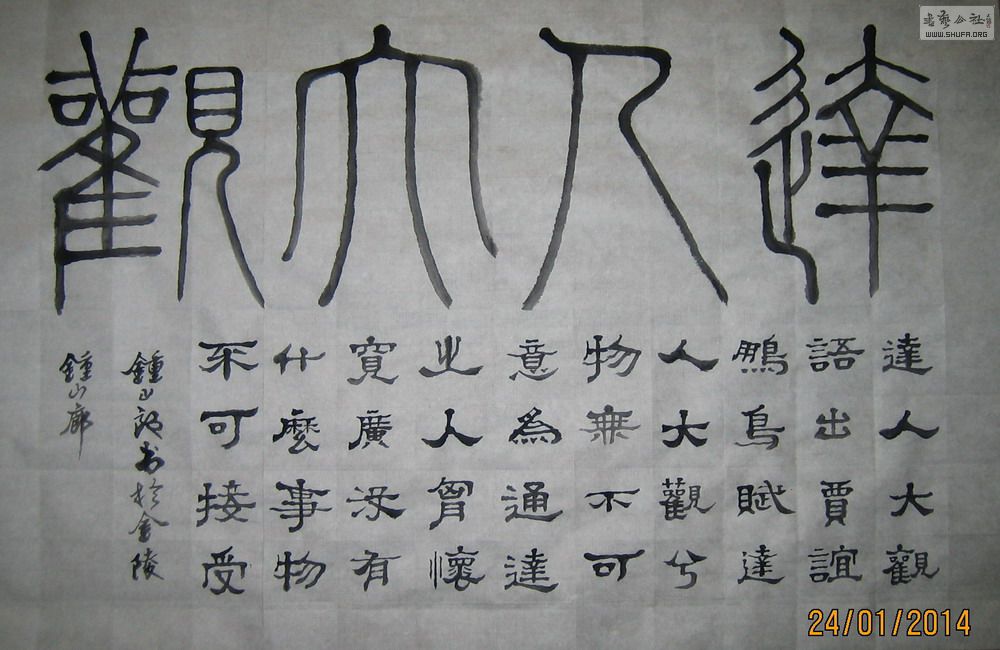 達人大觀
達人大觀
語出賈誼
鵬鳥賦達
人大觀兮
物無不可
意為通達
之人胷懷
寬廣沒有
什麼事物
不可接受
鍾山郎书於金陵
鍾山廊
书艺公社
WWW.SHUFA.ORG
24/01/2014